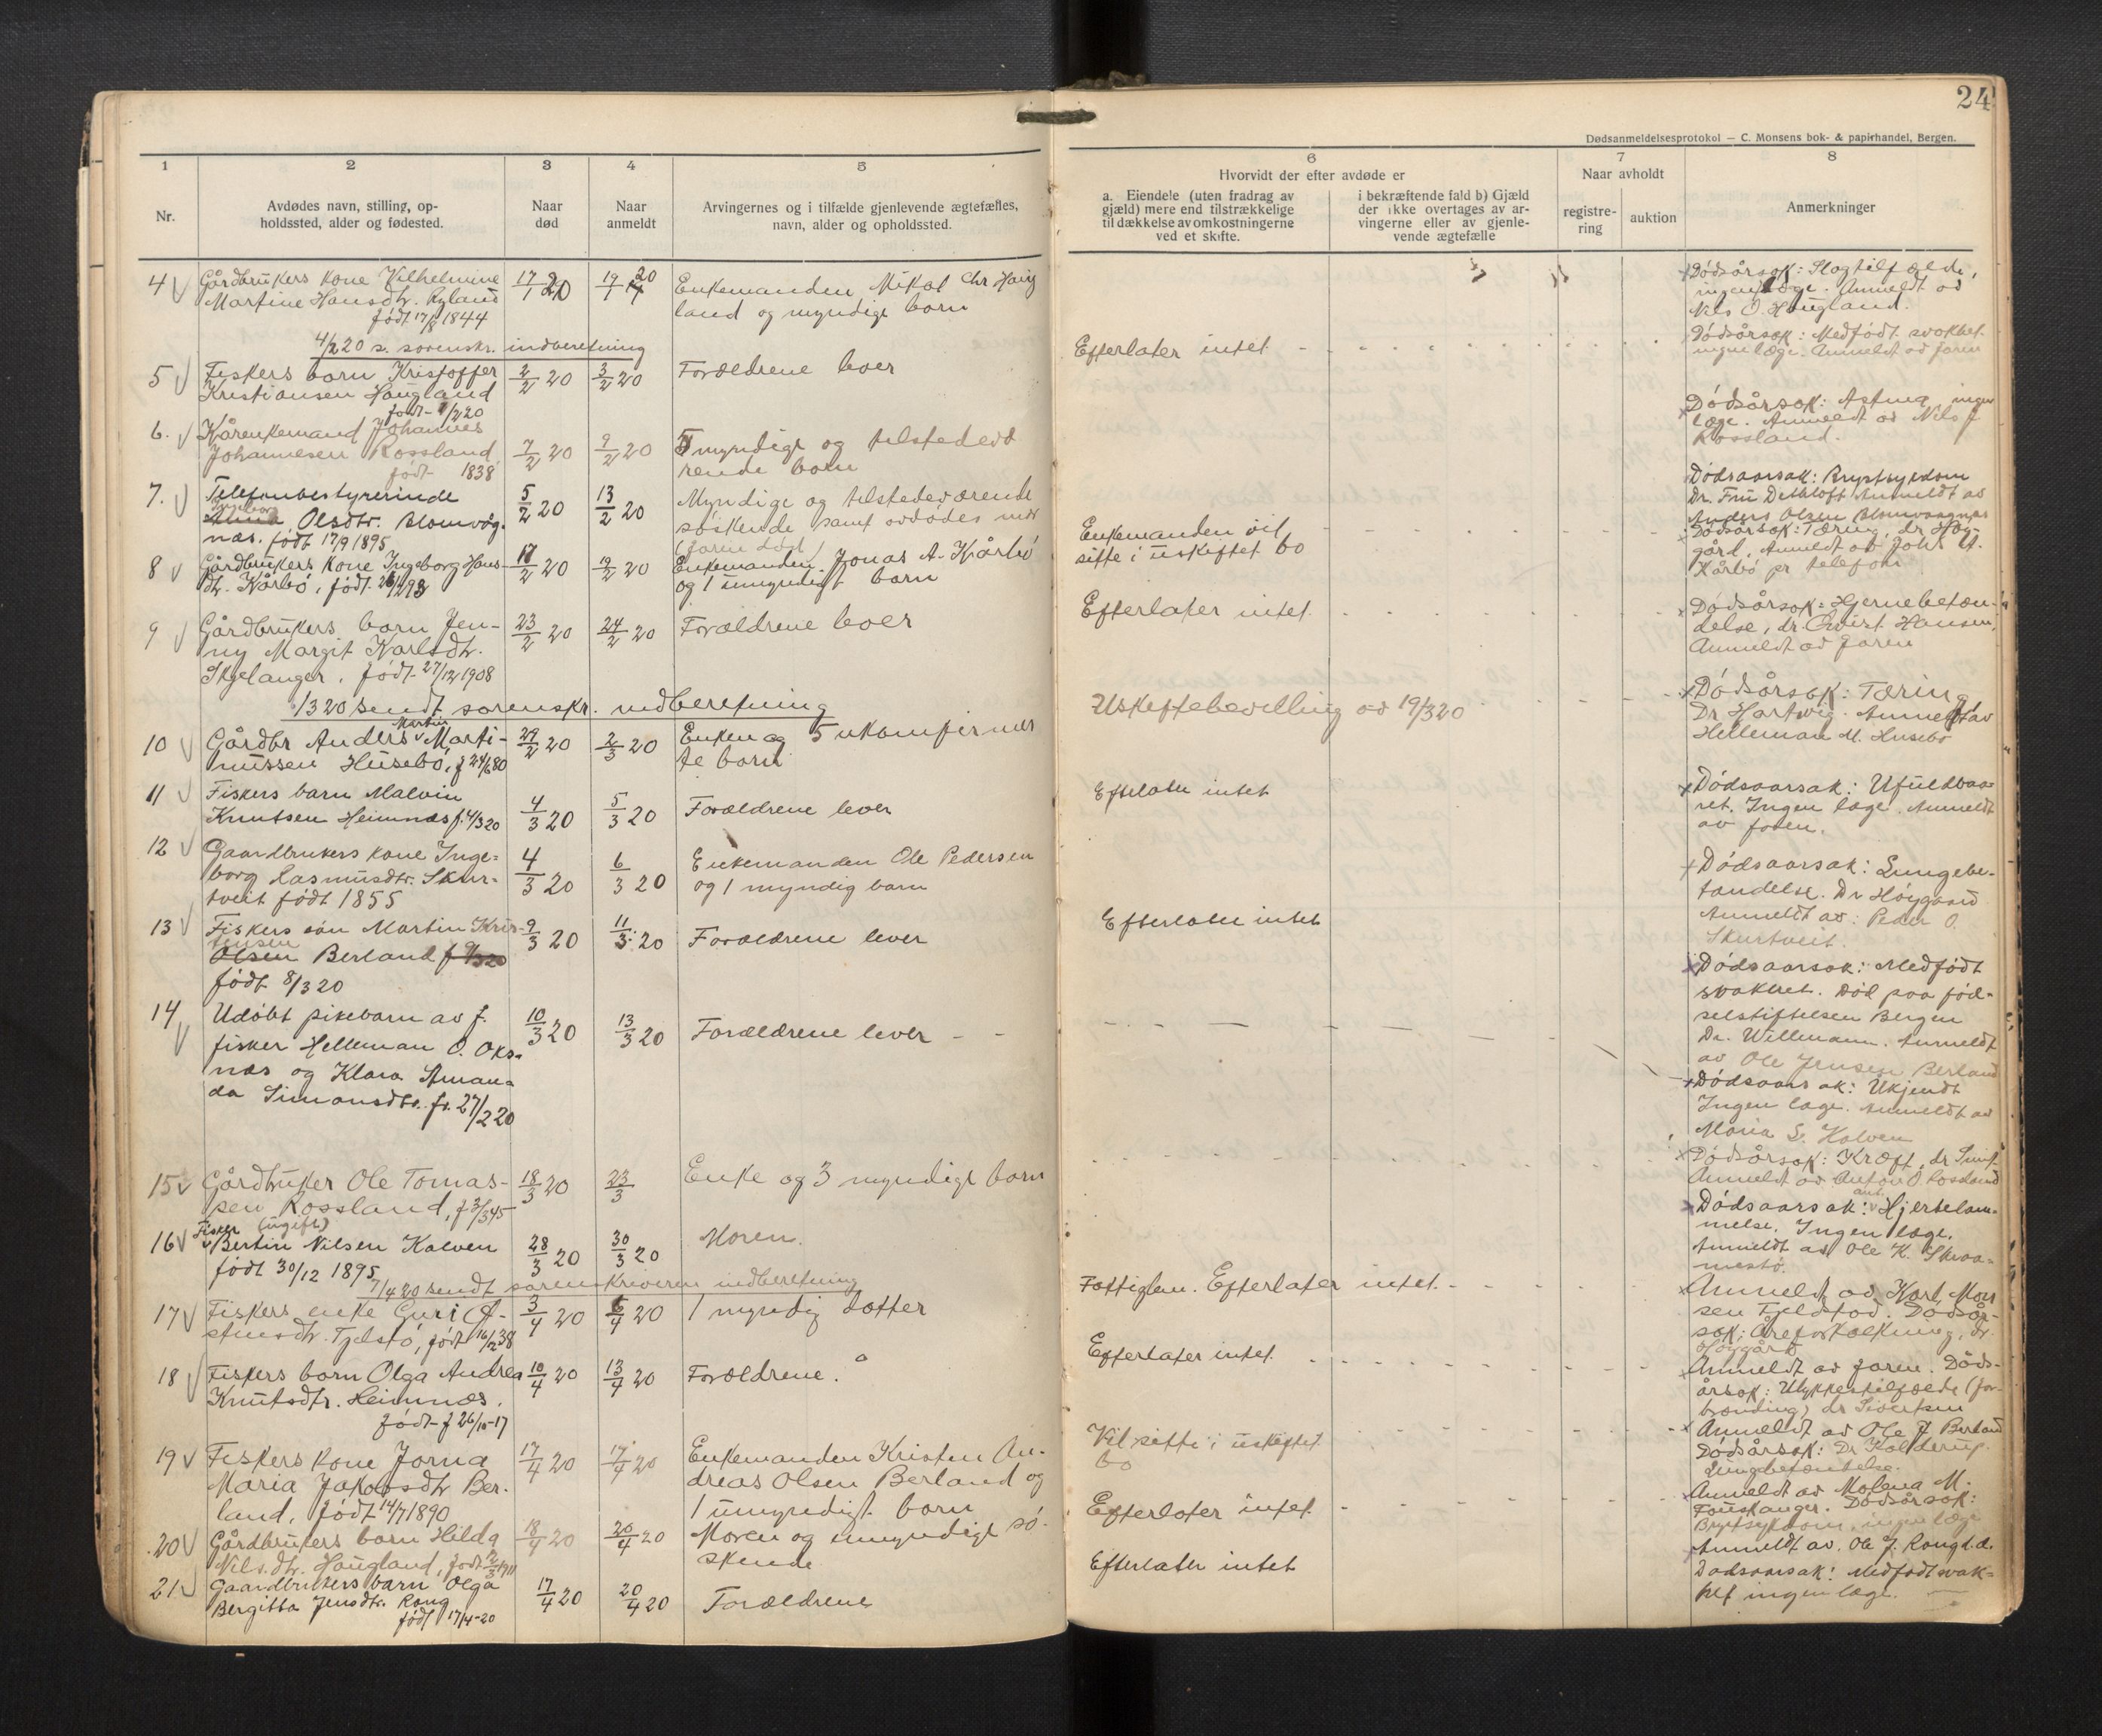 24
Dødsanmeldelsesprotokol — C. Monsens bok- & papirhandel, Bergen.
1
2
3
4
5
6
7
8
Nr.
Avdødes navn, stilling, op-
holdssted, alder og fødested.
Naar
død
Naar
anmeldt
Arvingernes og i tilfælde gjenlevende ægtefælles,
navn, alder og opholdssted.
Hvorvidt der efter avdøde er
a. Eiendele (uten fradrag av
gjæld) mere end tilstrækkelige
til dækkelse av omkostningerne
ved et skifte.
i bekræftende fald b) Gjæld
der ikke overtages av ar-
vingerne eller av gjenle-
vende ægtefælle
Naar avholdt
registre-
ring
auktion
Anmerkninger
4
Gårdbrukers kone Vilhelmine
Martine Hansdtr. Ryland
født 17/8 1844
17/1 20
19/1 20
Enkemanden Mikal Chr Haug
land og myndige børn
Dødsårsak: Slagtilfælde,
ingen læge. Anmeldt av
Nils O. Haugland.
4/2 20 s. sorenskr. indberetning
5
Fiskers barn Kristoffer
Kristiansen Haugland
født 1/2 20
2/2 20
3/2 20
Forældrene lever
Efterlater intet
Dødsårsak: Medfødt svakhet
ingen læge. Anmeldt av faren
6.
Kårenkemand Johannes
Johannesen Rossland
født 1838
7/2 20
9/2 20
5 myndige og tilstedevæ
rende børn
Dødsårsak: Astma, ingen
læge. Anmeldt av Nils J
Rossland.
7.
Telefonbestyrerinde
Olsdtr. Blomvåg-
næs. født 17/9 1895
5/2 20
13/2 20
Myndige og tilstedeværende
søskende samt avdødes mor
(faren død)
Dødsaarsak: Brystsygdom
Dr. Fru Dethloff Anmeldt av
Anders Olsen Blomvaagnæs
8
Gårdbrukers kone Ingeborg Hans-
dtr. Kårbø, født
17/2 20
19/2 20
Enkemanden Jonas A. Kårbø
og 1 umyndigt barn
Enkemanden vil
sitte i uskiftet bo
Dødsårsak: Tæring, dr. Høy-
gård, Anmeldt av Johs A.
Kårbø pr telefon
9
Gårdbrukers barn Jen-
ny Margit Karlsdtr.
Skjelanger, født 27/12 1908
23/2 20
24/2 20
Forældrene lever
Efterlater intet
Dødsårsak: Hjernebetæn-
delse, dr. Hansen,
Anmeldt av faren
1/3 20 sendt sorenskr. indberetning
10
Gårdbr Anders Martin Marti-
nussen Husebø, f 24/6 80
29/2 20
2/3 20
Enken og 5 ukonfirmer
te børn
Uskiftebevilling av 19/3 20
Dødsårsak: Tæring
Dr Hartvig. Anmeldt av
Helleman M. Husebø
11
Fiskers barn Malvin
Knutsen Heimnæs f. 4/3 20
4/3 20
5/3 20
Forældrene lever
Efterlater intet
Dødsaarsak: Ufuldbaa-
ret. Ingen læge. Anmeldt
av faren.
12
Gaardbrukers kone Inge-
borg Rasmusdtr. Skur-
tveit født 1855
4/3 20
6/3 20
Enkemanden Ole Pedersen
og 1 myndig barn
Dødsaarsak: Lungebe-
tændelse. Dr Høygaard
Anmeldt av: Peder O.
Skurtveit.
13
Fiskers søn Martin Kris-
tensen
Olsen Berland f 9/3 20
født 8/3 20
9/3 20
11/3 20
Forældrene lever
Efterlater intet
Dødsaarsak: Medfødt
svakhet. Død paa fød-
selstiftelsen Bergen
Dr. Willemann. Anmeldt
av Ole Jensen Berland
14
Udøbt pikebarn av f.
fisker Helleman O. Oks-
næs og Klara Aman-
da Simonsdtr. f. 27/2 20
10/3 20
13/3 20
Forældrene lever
Dødsaarsak: Ukjendt
Ingen læge. Anmeldt av
Maria S. Kalven
15
Gårdbruker Ole Tomas-
sen Rossland, f 3/3 45
18/3 20
23/3
Enke og 3 myndige børn
Dødsårsak: Kræft, dr
Anmeldt av Anton O. Rossland
16
Fisker (ugift)
Bertin Nilsen Kalven
født 30/12 1895
28/3 20
30/3 20
Moren.
Dødsaarsak: Hjertelam-
melse. Ingen læge.
Anmeldt av Ole K.
7/4 20 sendt sorenskriveren indberetning
17
Fiskers enke Guri A-
Tjelstø, født 16/2 38
3/4 20
6/4 20
1 myndig datter
Fattiglem. Efterlater intet
Anmeldt av Karl Mon
sen Fjeldstad. Dødsår-
sak: Åreforkalkning, dr.
Høygård
18
Fiskers barn Olga Andrea
Knutsdtr. Heimnæs.
født f 26/10-17
10/4 20
13/4 20
Forældrene.
Efterlater intet
Anmeldt av faren. Døds-
årsak: Ulykkestilfælde (for-
brænding) dr Sivertsen
19
Fiskers kone Jorna
Maria Jakobsdtr Ber-
land, født 14/7 1890
17/4 20
19/4 20
Enkemanden Kristen An-
dreas Olsen Berland og
1 umyndigt barn
Vil sitte i uskiftet
bo
Anmeldt av Ole J Berland
Dødsårsak: Dr Kolderup.
Lungebetændelse.
20
Gårdbrukers barn Hilda
Nilsdtr. Haugland, født 1911
18/4 20
20/4 20
Moren og umyndige sø-
skende
Efterlater intet
Anmeldt av Malena M.
Fauskanger. Dødsårsak:
Brystsykdom, ingen læge
21
Gaardbrukers barn Olga
Bergitta Jensdtr. Rong
født 17/4-20
17/4 20
20/4 20
Forældrene
Efterlater intet
Anmeldt av. Ole J. Rong s.d.
Dødsaarsak: Medfødt svak-
het ingen læge.